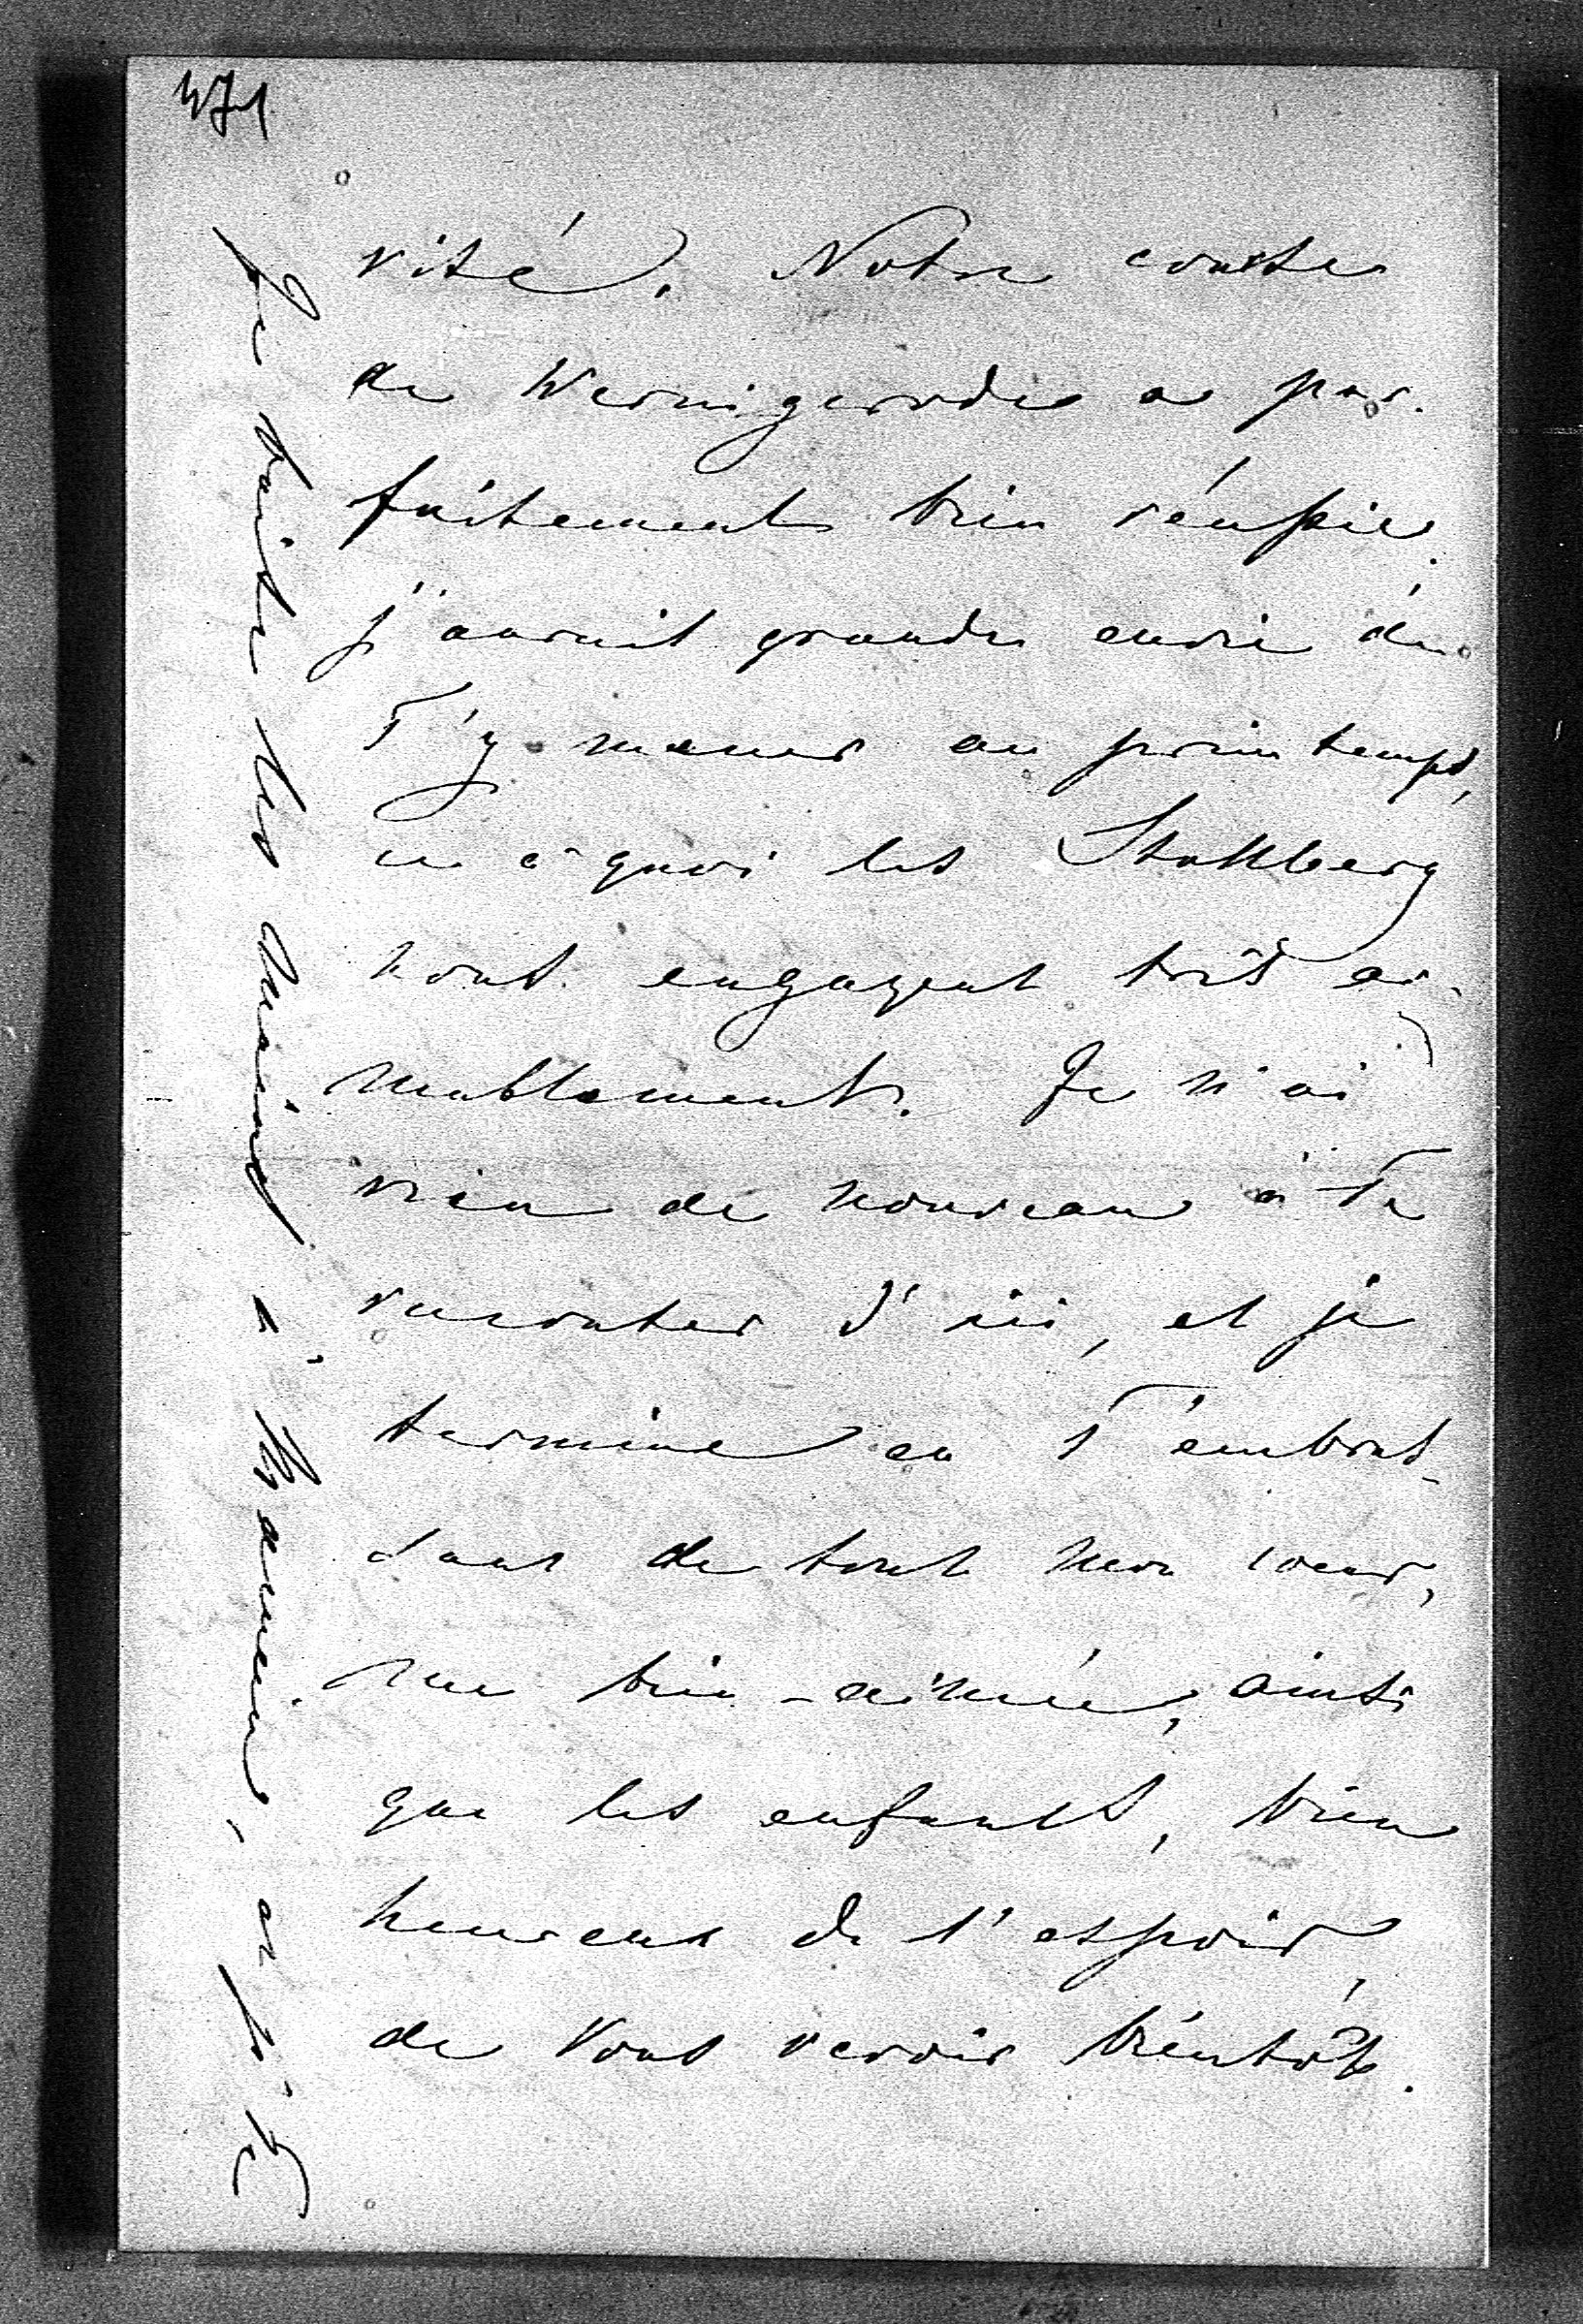 471
rité. Notre course
de Wernigerode a par-
faitement bien réussie.
j'aurait grande envie de
T'y mener au printemps,
ce à quoi les Stollberg
nous engagent très ai-
mablement. Je n'ai
rien de nouveau à Te
raconter d'ici, et je
termine en T'embras-
sant de tout mon coeur,
ma bien-aimée, ainsi
que les enfants, bien
heureux de l'espoir,
de Vous revoir bientôt.
Je baise les mains à Maman,